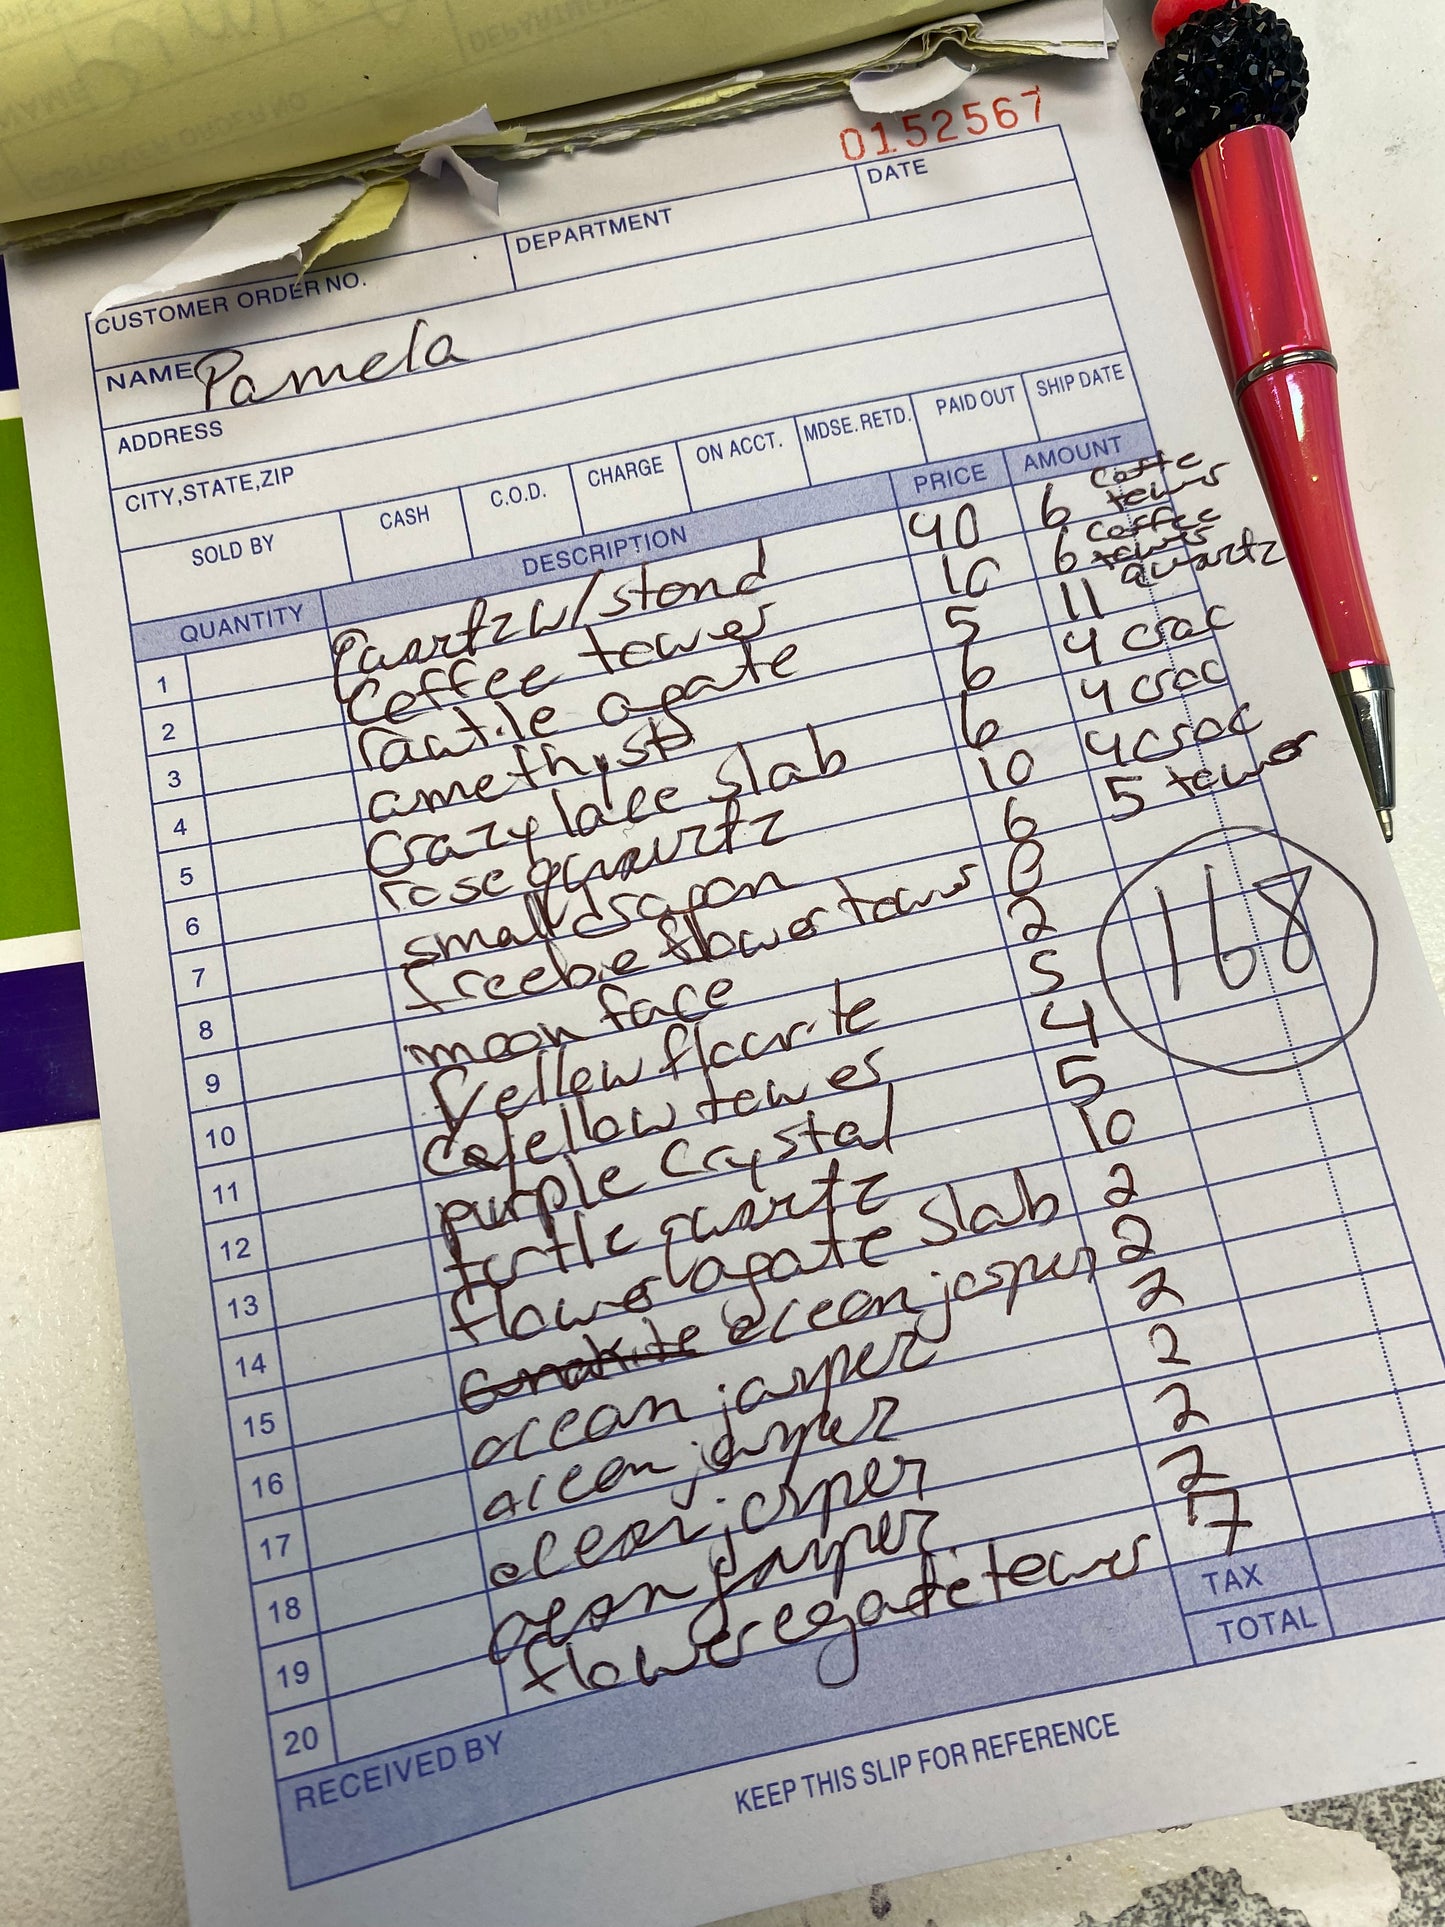 0152567
CUSTOMER ORDER NO. DEPARTMENT DATE
NAME Pamela
ADDRESS
CITY,STATE,ZIP
SOLD BY CASH C.O.D. CHARGE ON ACCT. MDSE. RETD. PAID OUT SHIP DATE
QUANTITY DESCRIPTION PRICE AMOUNT
1 Quartz w/stand 40 6 coffe towers
2 Coffee tower 10 6 coffee towers
3 agate 5 11 quartz
4 amethyst 6 4 croc
5 Crazy lace slab 6 4 croc
6 rose quartz 10 4 croc
7 small dragon 6 5 tower
8 freebie flower tower 0
9 moon face 2 168
10 yellow flourite 5
11 tower 4
12 purple crystal 5
13 turtle quartz 10
14 flower agate slab 2
15 ocean jasper 2
16 ocean jasper 2
17 ocean jasper 2
18 ocean jasper 2
19 ocean jasper 2
20 flower agate tower 7
RECEIVED BY TAX
TOTAL
KEEP THIS SLIP FOR REFERENCE